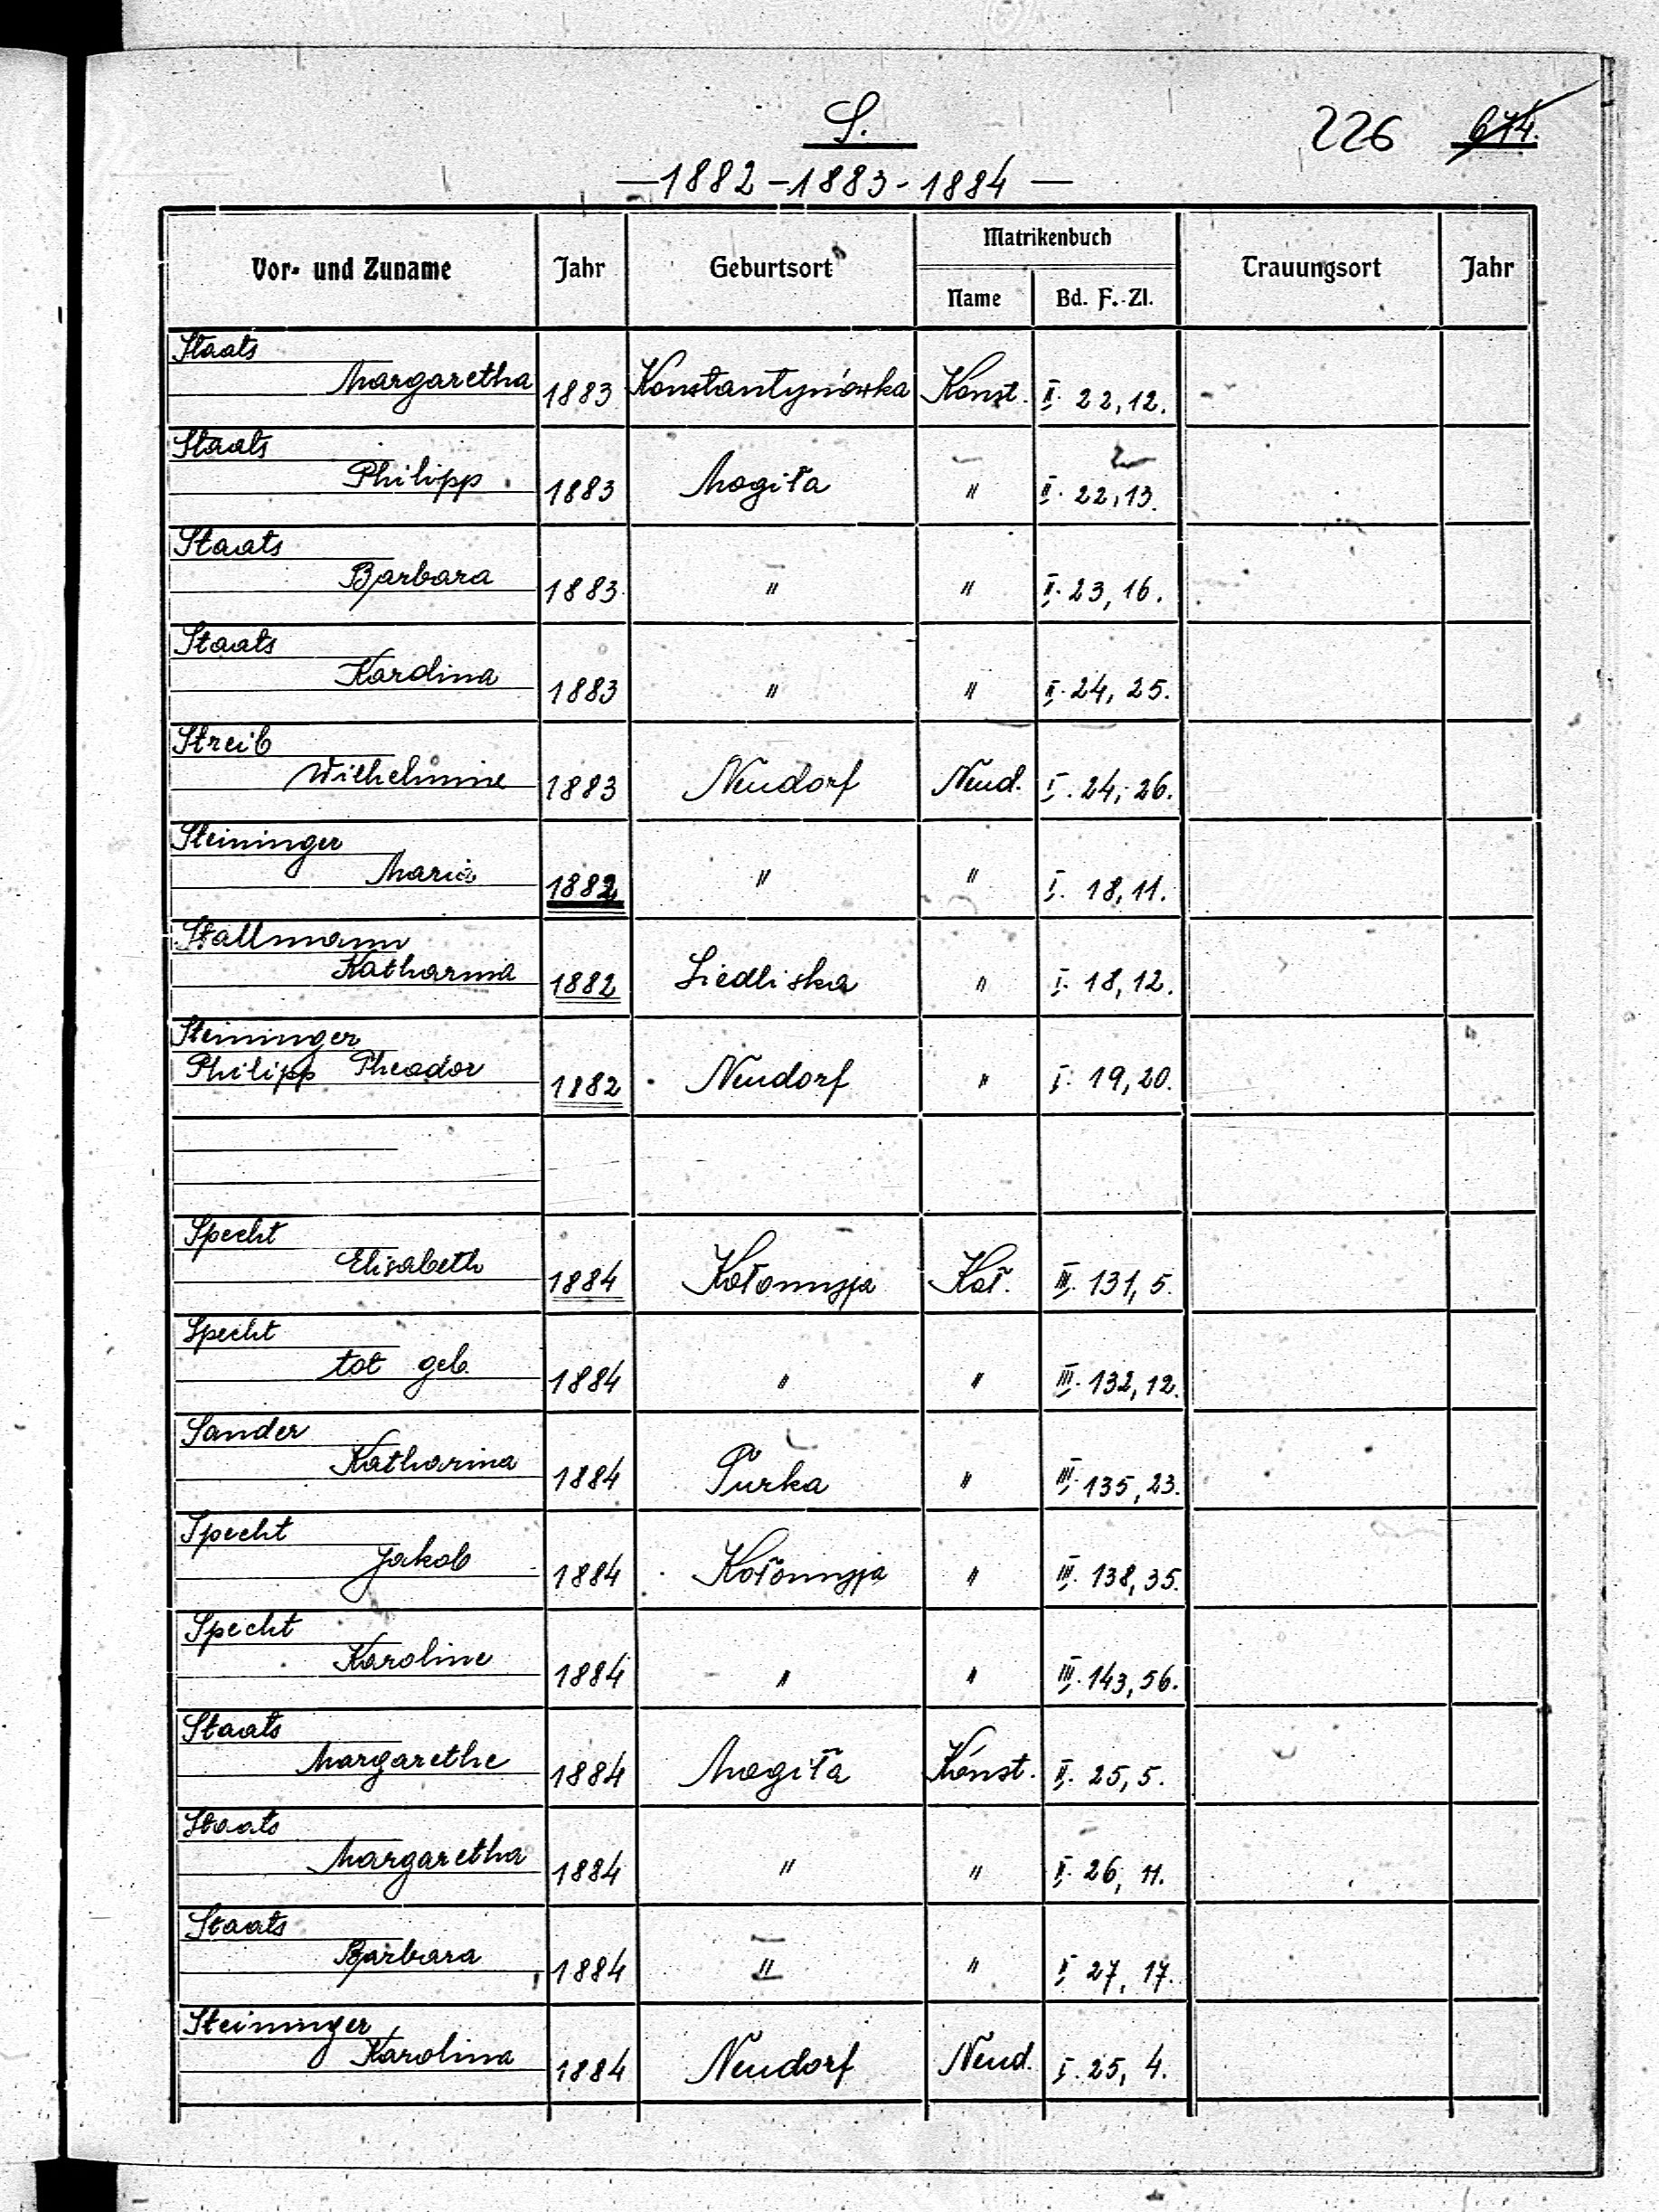 S.
226 674.
—1882-1883-1884—
Vor- und Zuname Jahr Geburtsort Matrikenbuch Trauungsort Jahr
Name Bd. F.-Zl.
Staats
Margaretha 1883 Konstantynówka Konst. II. 22,12.
Staats
Philipp 1883 Mogiła " II. 22,13.
Staats
Barbara 1883 " " II. 23,16.
Staats
Karolina 1883 " " II. 24, 25.
Streib
Wilhelmine 1883 Neudorf Neud. I. 24, 26.
Steininger
Maria 1882 " " I. 18,11.
Stallmann
Katharina 1882 Siedliska " I. 18,12.
Steininger
Philipp Theodor 1882 Neudorf " I. 19,20.
Specht
Elisabeth 1884 Kołomyja Koł. III. 131, 5.
Specht
tot geb. 1884 " " III. 132,12.
Sander
Katharina 1884 Turka " III. 135,23.
Specht
Jakob 1884 Kołomyja " III. 138,35.
Specht
Karoline 1884 " " III. 143,56.
Staats
Margarethe 1884 Mogiła Konst. II. 25,5.
Staats
Margaretha 1884 " " II. 26, 11.
Staats
Barbara 1884 " " II. 27, 17.
Steininger
Karolina 1884 Neudorf Neud. I. 25, 4.